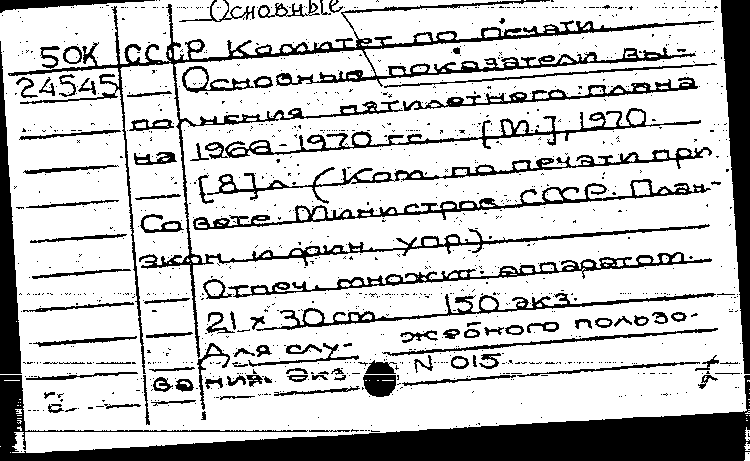 Основные
50К СССР Комитет по печати.
24545 Основные показатели вы-
полнения пятилетнего плана
на 1966-1970 гг. [М.], 1970.
[8] л. (Ком. по печати при
Совете Министров СССР. План-
экон. и фин. упр.).
Отпеч. множит. аппаратом.
21 x 30 cm. 150 экз.
Для слу- жебного пользо-
вания. Экз N 015.